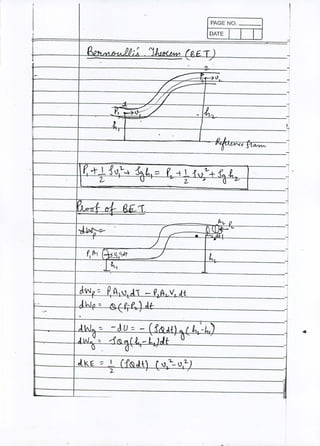 PAGE NO.
DATE
Bernoulli's Theorem (BET)
2
P₂ → v₂
1
P₁ → v₁
h₁
h₂
Reference
P₁ + 1/2 ρv₁² + ρgh₁ = P₂ + 1/2 ρv₂² + ρgh₂
Proof of BET
dWp =
P₂
P₁A₁
v₁dt
h₁
h₂
dWp = P₁A₁V₁dT - P₂A₂V₂ dt
dWp = Q(P₁-P₂) dt
dWg = -dU = - (ρQdt) g (h₂-h₁)
dWg = ρQg(h₁-h₂)dt
dKE = 1/2 (ρQdt) (v₂²-v₁²)